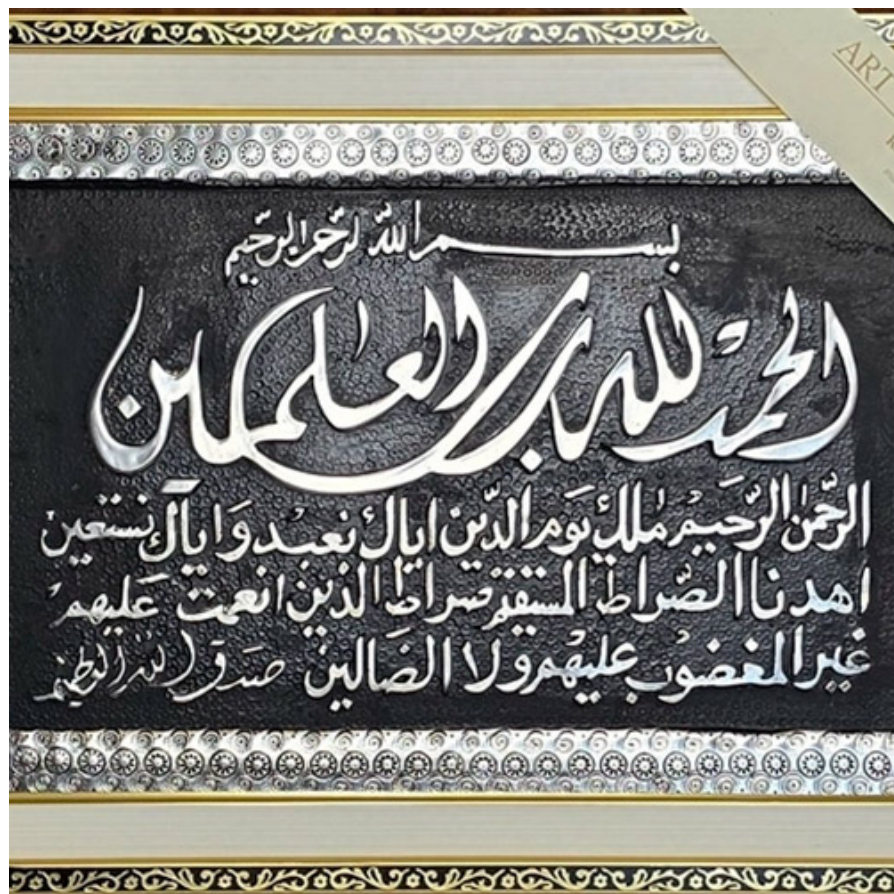 ART
بسم الله الرحمن الرحيم
الحمد لله رب العلمين
الرحمن الرحيم ملك يوم الدين اياك نعبد واياك نستعين
اهدنا الصراط المستقيم صراط الذين انعمت عليهم
غير المغضوب عليهم ولا الضالين صدق الله العظيم